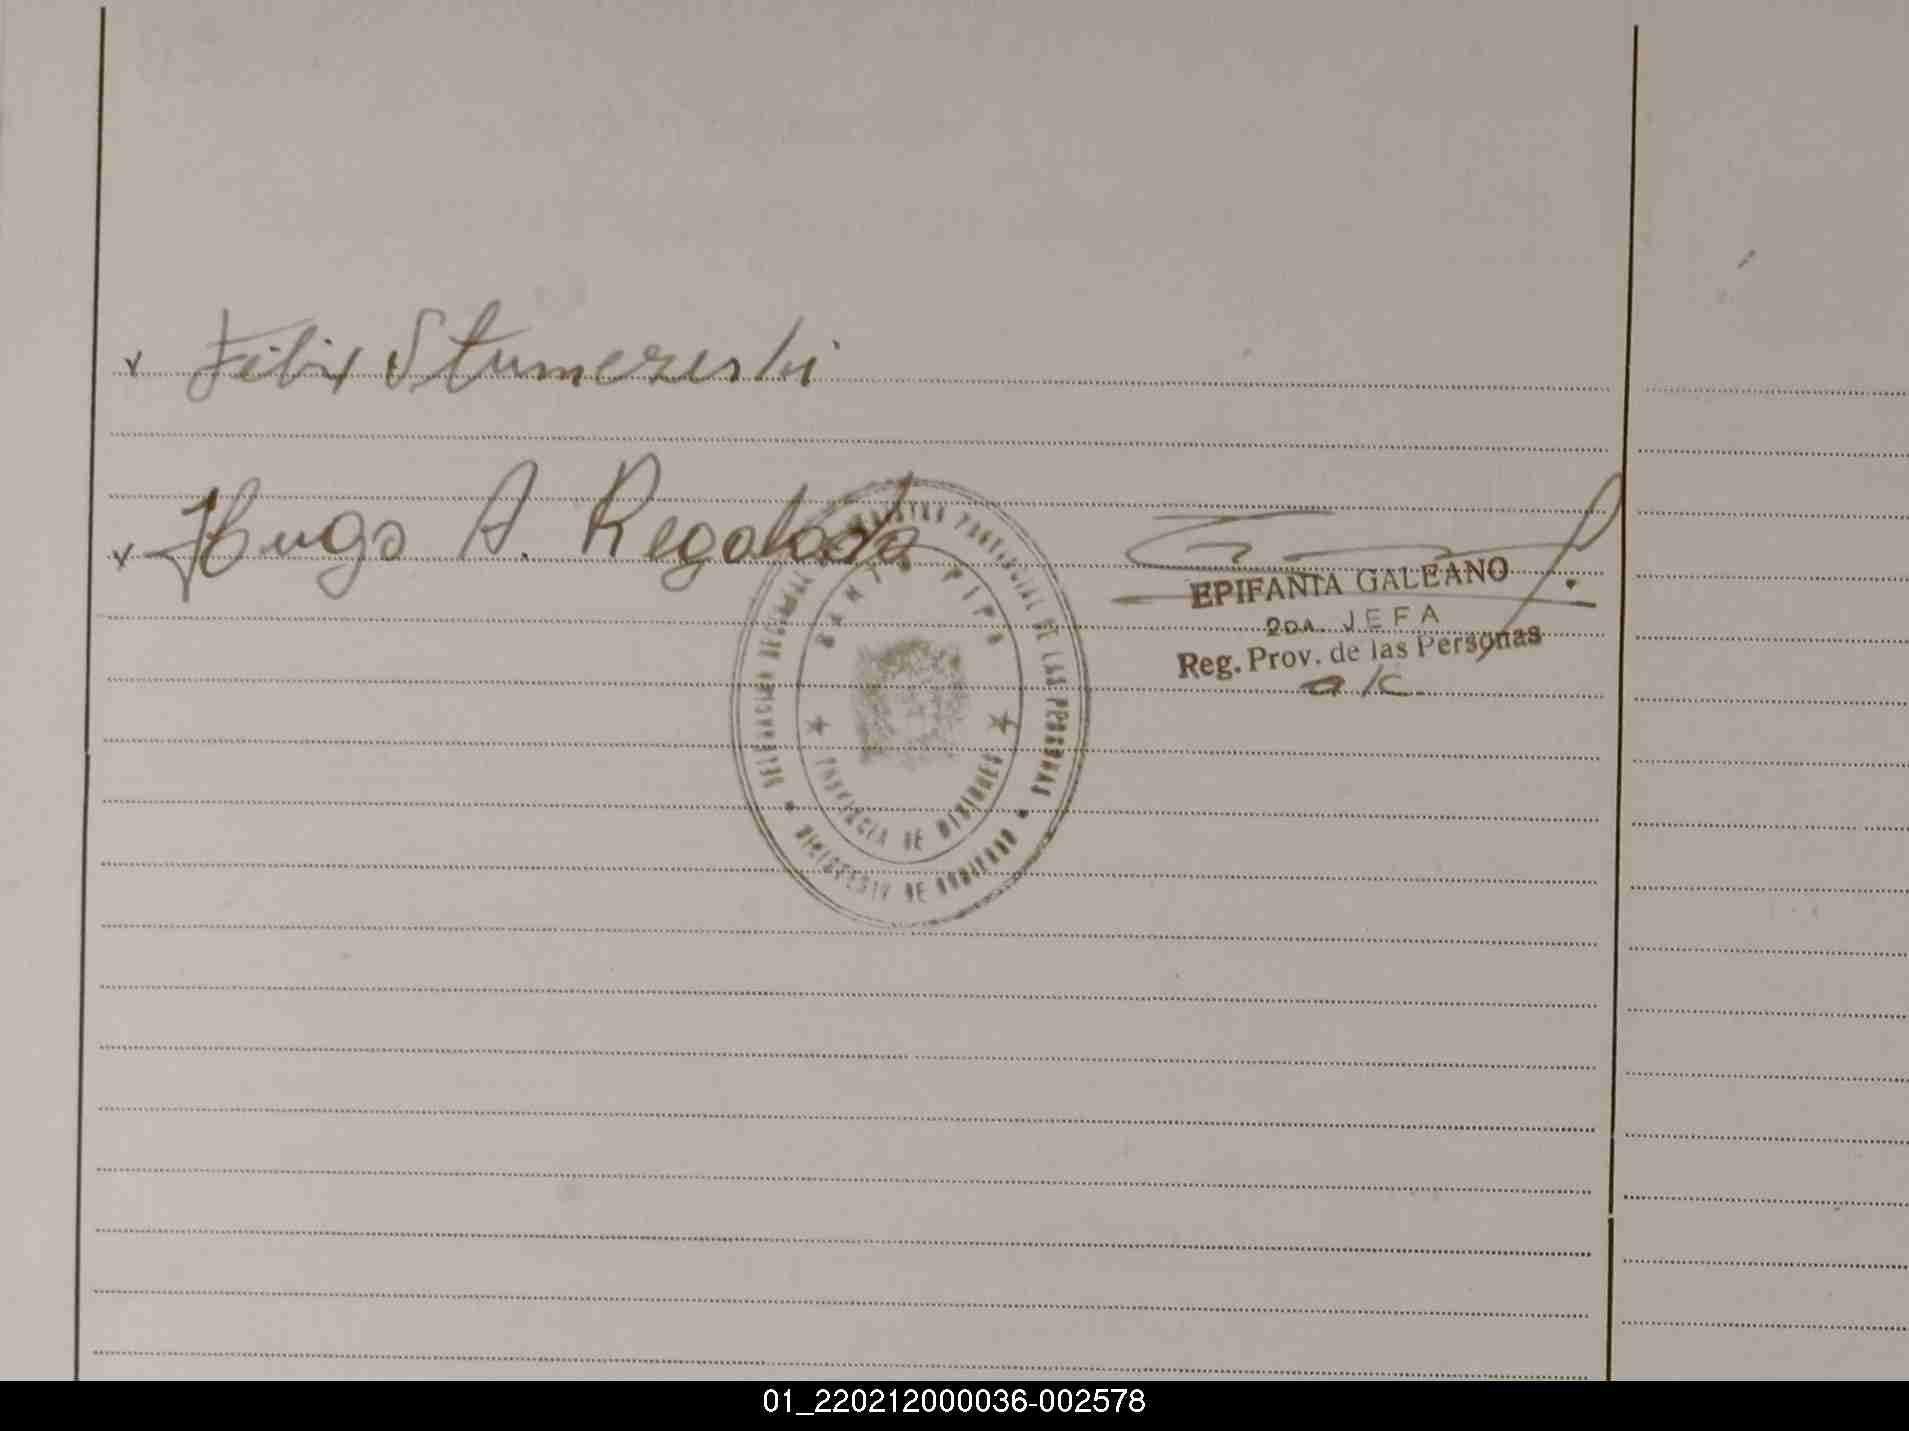 Felix Stumczeski
Hugo A. Regalado
DELEGACION REGIONAL REGISTRO PROVINCIAL DE LAS PERSONAS
SANTO PIPO
PROVINCIA DE MISIONES
MINISTERIO DE GOBIERNO
EPIFANIA GALEANO
2DA. JEFA
Reg. Prov. de las Personas
a/c.
01_220212000036-002578